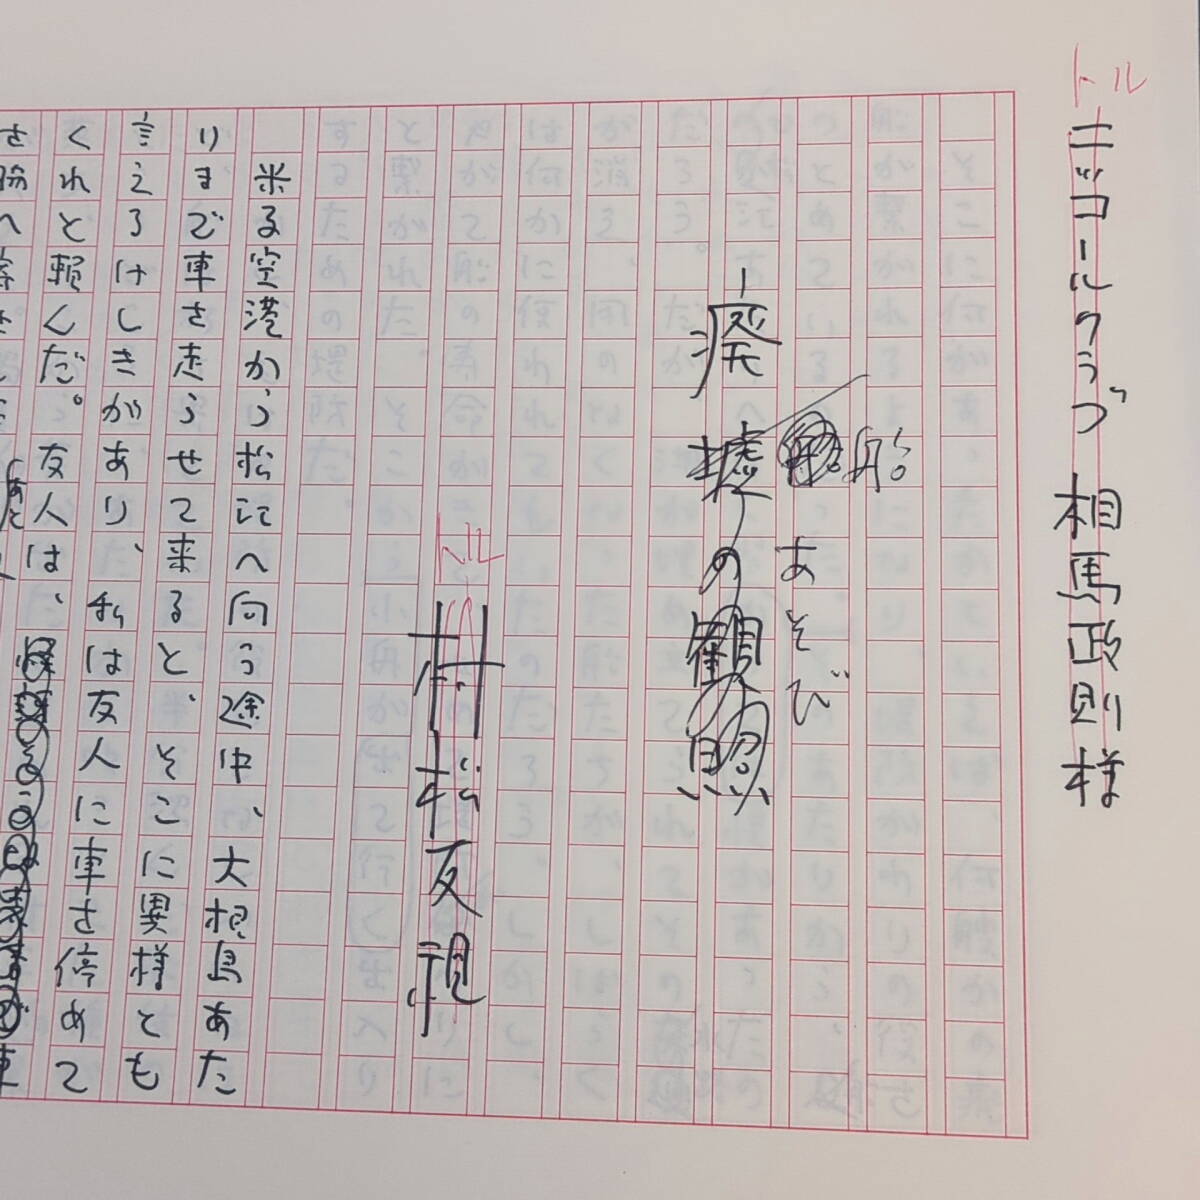 トル
ニッコールクラブ 相馬政則様
船
あそび
廃墟の観照
トル
村松友視
米子空港から松江へ向う途中、大根島あた
りまで車を走らせて来ると、そこに異様とも
言えるけしきがあり、私は友人に車を停めて
くれと頼んだ。友人は、